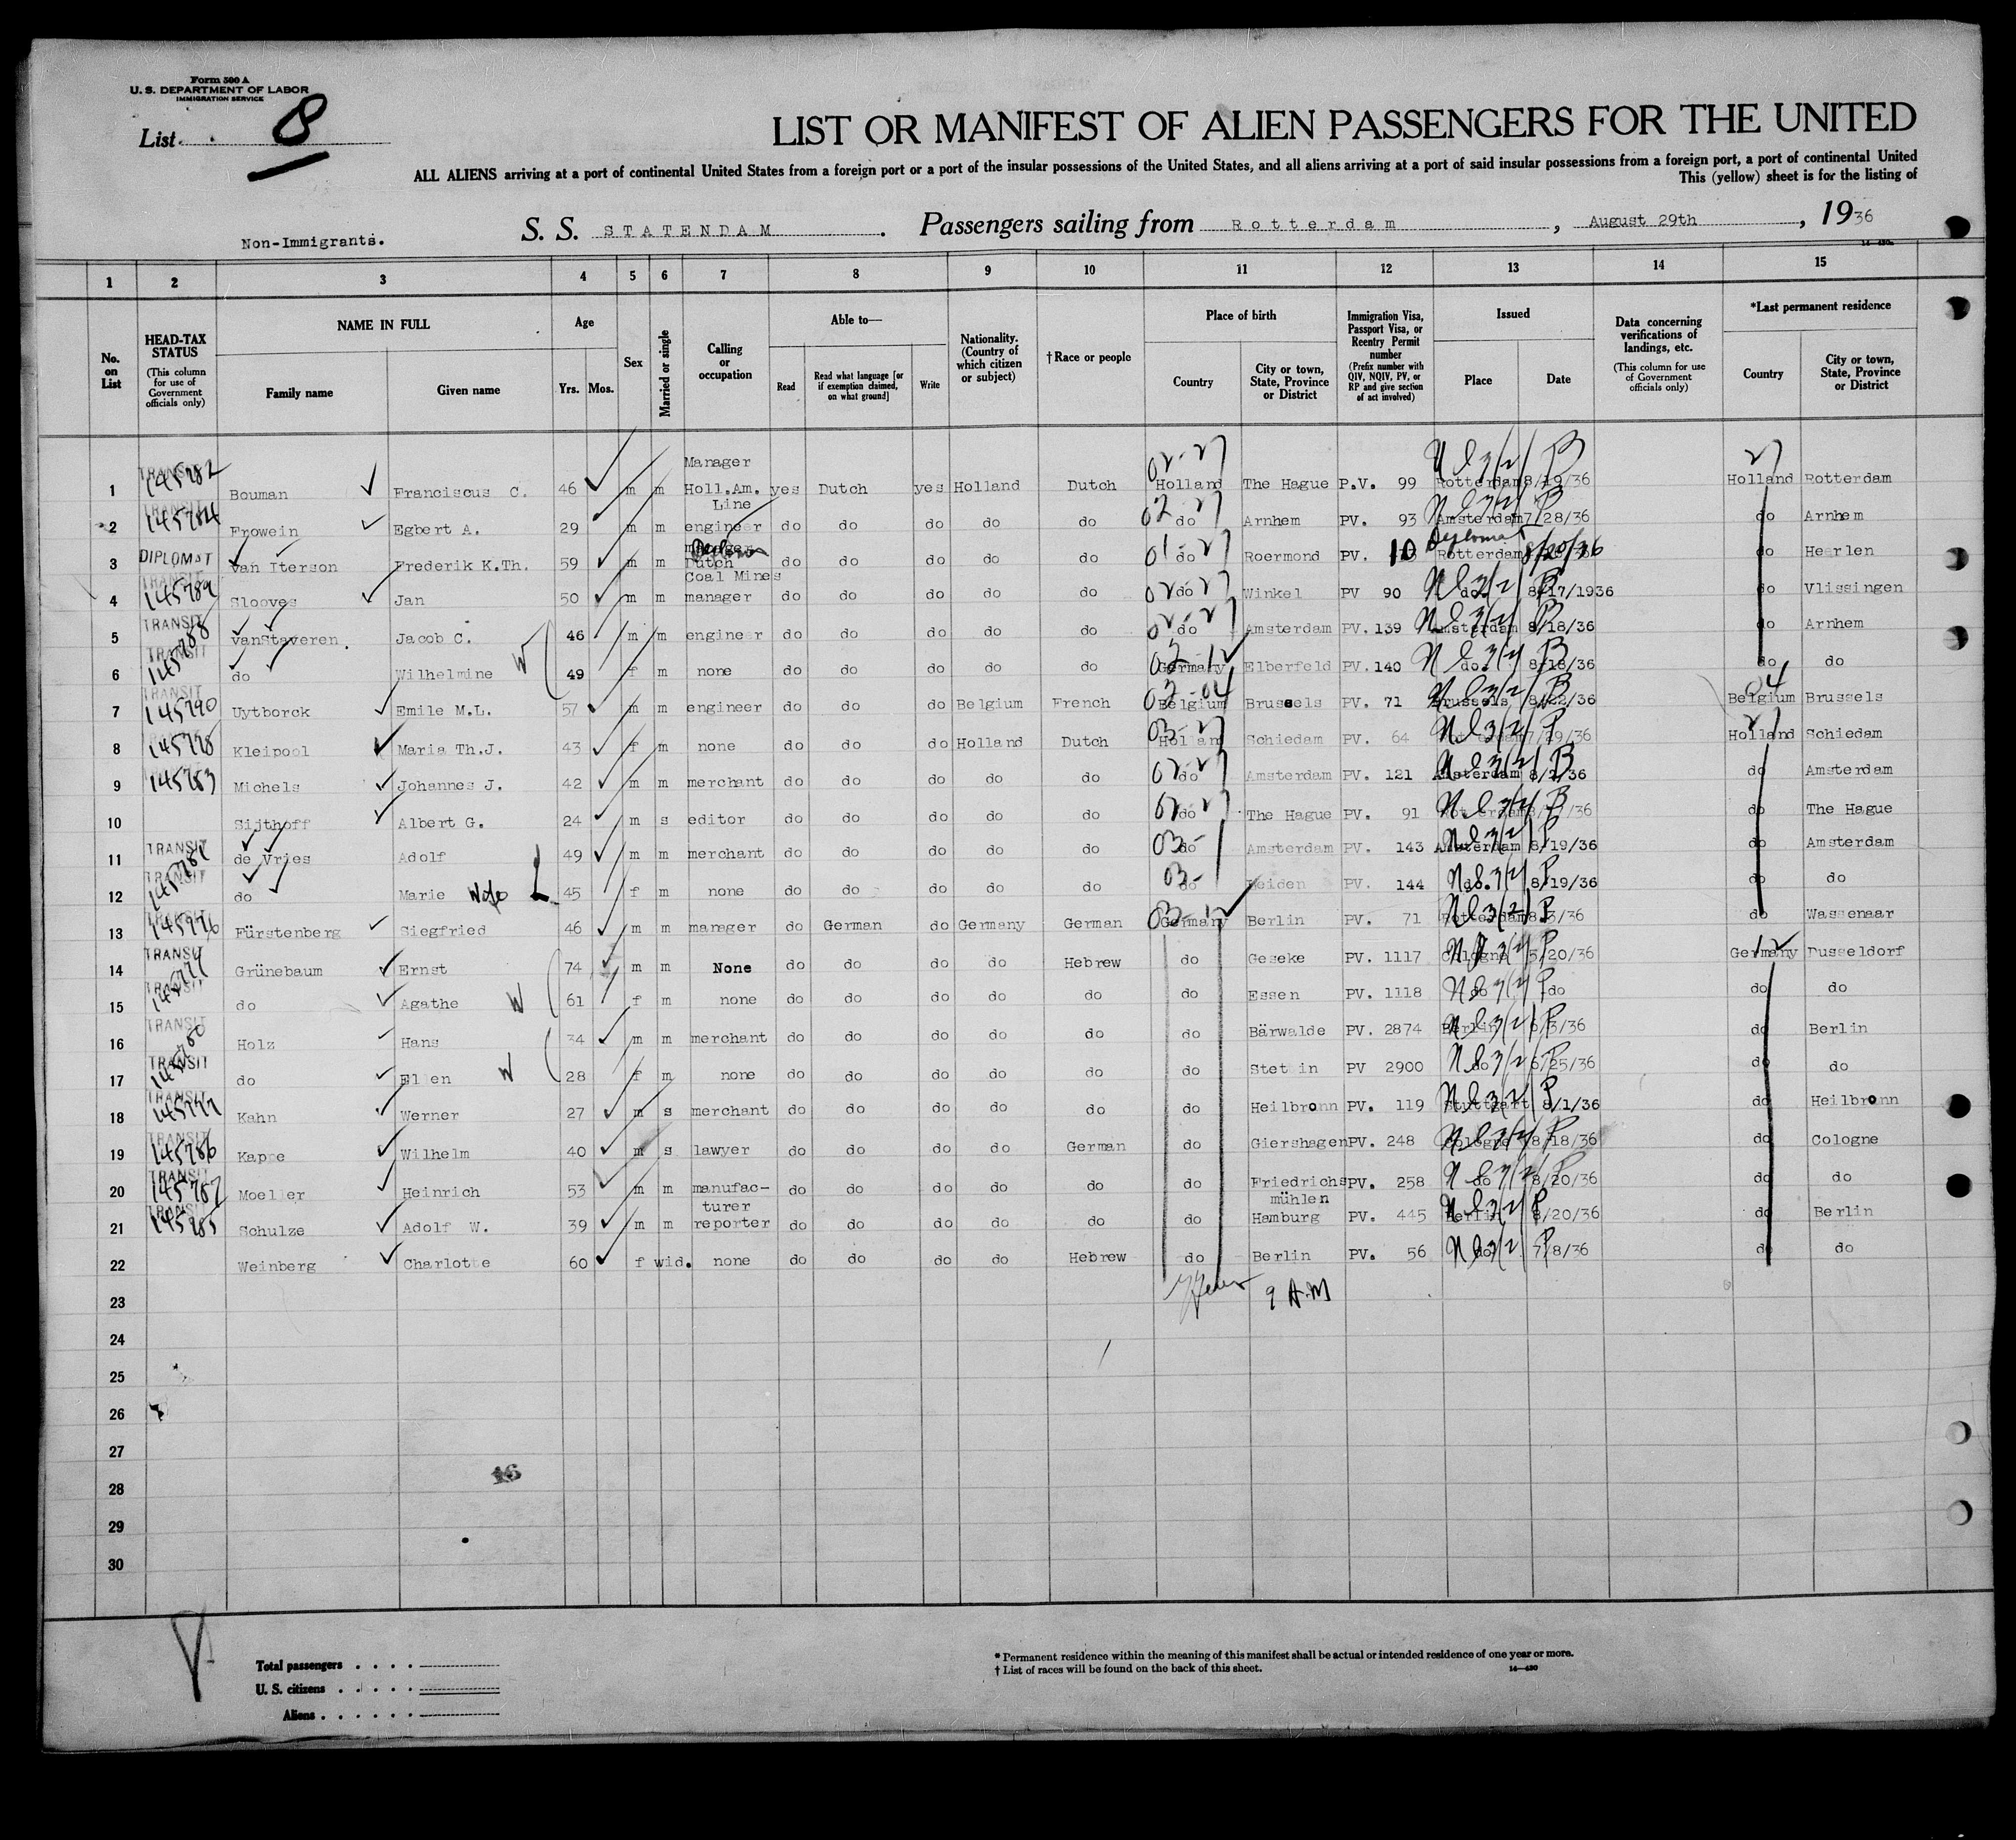 Form 500 A
U. S. DEPARTMENT OF LABOR
IMMIGRATION SERVICE
List 8
LIST OR MANIFEST OF ALIEN PASSENGERS FOR THE UNITED
ALL ALIENS arriving at a port of continental United States from a foreign port or a port of the insular possessions of the United States, and all aliens arriving at a port of said insular possessions from a foreign port, a port of continental United
This (yellow) sheet is for the listing of
Non-Immigrants. S. S. STATENDAM . Passengers sailing from Rotterdam , August 29th , 1936
1 2 3 4 5 6 7 8 9 10 11 12 13 14 15
No. on List
HEAD-TAX STATUS (This column for use of Government officials only)
NAME IN FULL Family name Given name
Age Yrs. Mos.
Sex
Married or single
Calling or occupation
Able to— Read Read what language [or if exemption claimed, on what ground] Write
Nationality. (Country of which citizen or subject)
†Race or people
Place of birth Country City or town, State, Province or District
Immigration Visa, Passport Visa, or Reentry Permit number (Prefix number with QIV, NQIV, PV, or RP and give section of act involved)
Issued Place Date
Data concerning verifications of landings, etc. (This column for use of Government officials only)
*Last permanent residence Country City or town, State, Province or District
1 TRANSIT 145782 Bouman Franciscus C. 46 m m Manager Holl.Am. Line yes Dutch yes Holland Dutch 02-27 Holland The Hague P.V. 99 Rotterdam 8/19/36 27 Holland Rotterdam
2 TRANSIT 145784 Frowein Egbert A. 29 m m engineer do do do do do 02-27 do Arnhem PV. 93 Amsterdam 7/28/36 do Arnhem
3 DIPLOMAT van Iterson Frederik K.Th. 59 m m manager Dutch Coal Mines do do do do do 01-27 do Roermond PV. 10 Diplomat Rotterdam 8/20/36 do Heerlen
4 TRANSIT 145789 Slooves Jan 50 m m manager do do do do do 02-27 do Winkel PV 90 do 8/17/1936 do Vlissingen
5 TRANSIT 145788 vanStaveren. Jacob C. 46 m m engineer do do do do do 02-27 do Amsterdam PV. 139 Amsterdam 8/18/36 do Arnhem
6 TRANSIT do Wilhelmine W 49 f m none do do do do do 02-12 Germany Elberfeld PV. 140 do 8/18/36 do do
7 TRANSIT 145790 Uytborck Emile M.L. 57 m m engineer do do do Belgium French 02-04 Belgium Brussels PV. 71 Brussels 8/22/36 04 Belgium Brussels
8 145778 Kleipool Maria Th.J. 43 f m none do do do Holland Dutch 03-27 Holland Schiedam PV. 64 7/19/36 27 Holland Schiedam
9 145783 Michels Johannes J. 42 m m merchant do do do do do 02-27 do Amsterdam PV. 121 Amsterdam 8/1/36 do Amsterdam
10 Sijthoff Albert G. 24 m s editor do do do do do 02-27 do The Hague PV. 91 do The Hague
11 TRANSIT 145781 de Vries Adolf 49 m m merchant do do do do do 03- do Amsterdam PV. 143 Amsterdam 8/19/36 do Amsterdam
12 TRANSIT do Marie Wife 45 f m none do do do do do 03- do Leiden PV. 144 do. 8/19/36 do do
13 TRANSIT 145776 Fürstenberg Siegfried 46 m m manager do German do Germany German 03-12 Germany Berlin PV. 71 Rotterdam 8/3/36 do Wassenaar
14 TRANSIT 145779 Grünebaum Ernst 74 m m None do do do do Hebrew do Geseke PV. 1117 Cologne 5/20/36 12 Germany Dusseldorf
15 TRANSIT do Agathe W 61 f m none do do do do do do Essen PV. 1118 do do do do
16 TRANSIT 145780 Holz Hans 34 m m merchant do do do do do do Bärwalde PV. 2874 Berlin 6/3/36 do Berlin
17 TRANSIT do Ellen W 28 f m none do do do do do do Stettin PV 2900 do 6/25/36 do do
18 TRANSIT 145777 Kahn Werner 27 m s merchant do do do do do do Heilbronn PV. 119 Stuttgart 8/1/36 do Heilbronn
19 TRANSIT 145786 Kappe Wilhelm 40 m s lawyer do do do do German do Giershagen PV. 248 Cologne 8/18/36 do Cologne
20 TRANSIT 145787 Moeller Heinrich 53 m m manufacturer do do do do do do Friedrichsmühlen PV. 258 do 8/20/36 do do
21 TRANSIT 145785 Schulze Adolf W. 39 m m reporter do do do do do do Hamburg PV. 445 Berlin 8/20/36 do Berlin
22 Weinberg Charlotte 60 f wid. none do do do do Hebrew do Berlin PV. 56 do 7/8/36 do do
23 9 A.M
24
25
26
27
28
29
30
16
Total passengers
U. S. citizens
Aliens
* Permanent residence within the meaning of this manifest shall be actual or intended residence of one year or more.
† List of races will be found on the back of this sheet. 14—430